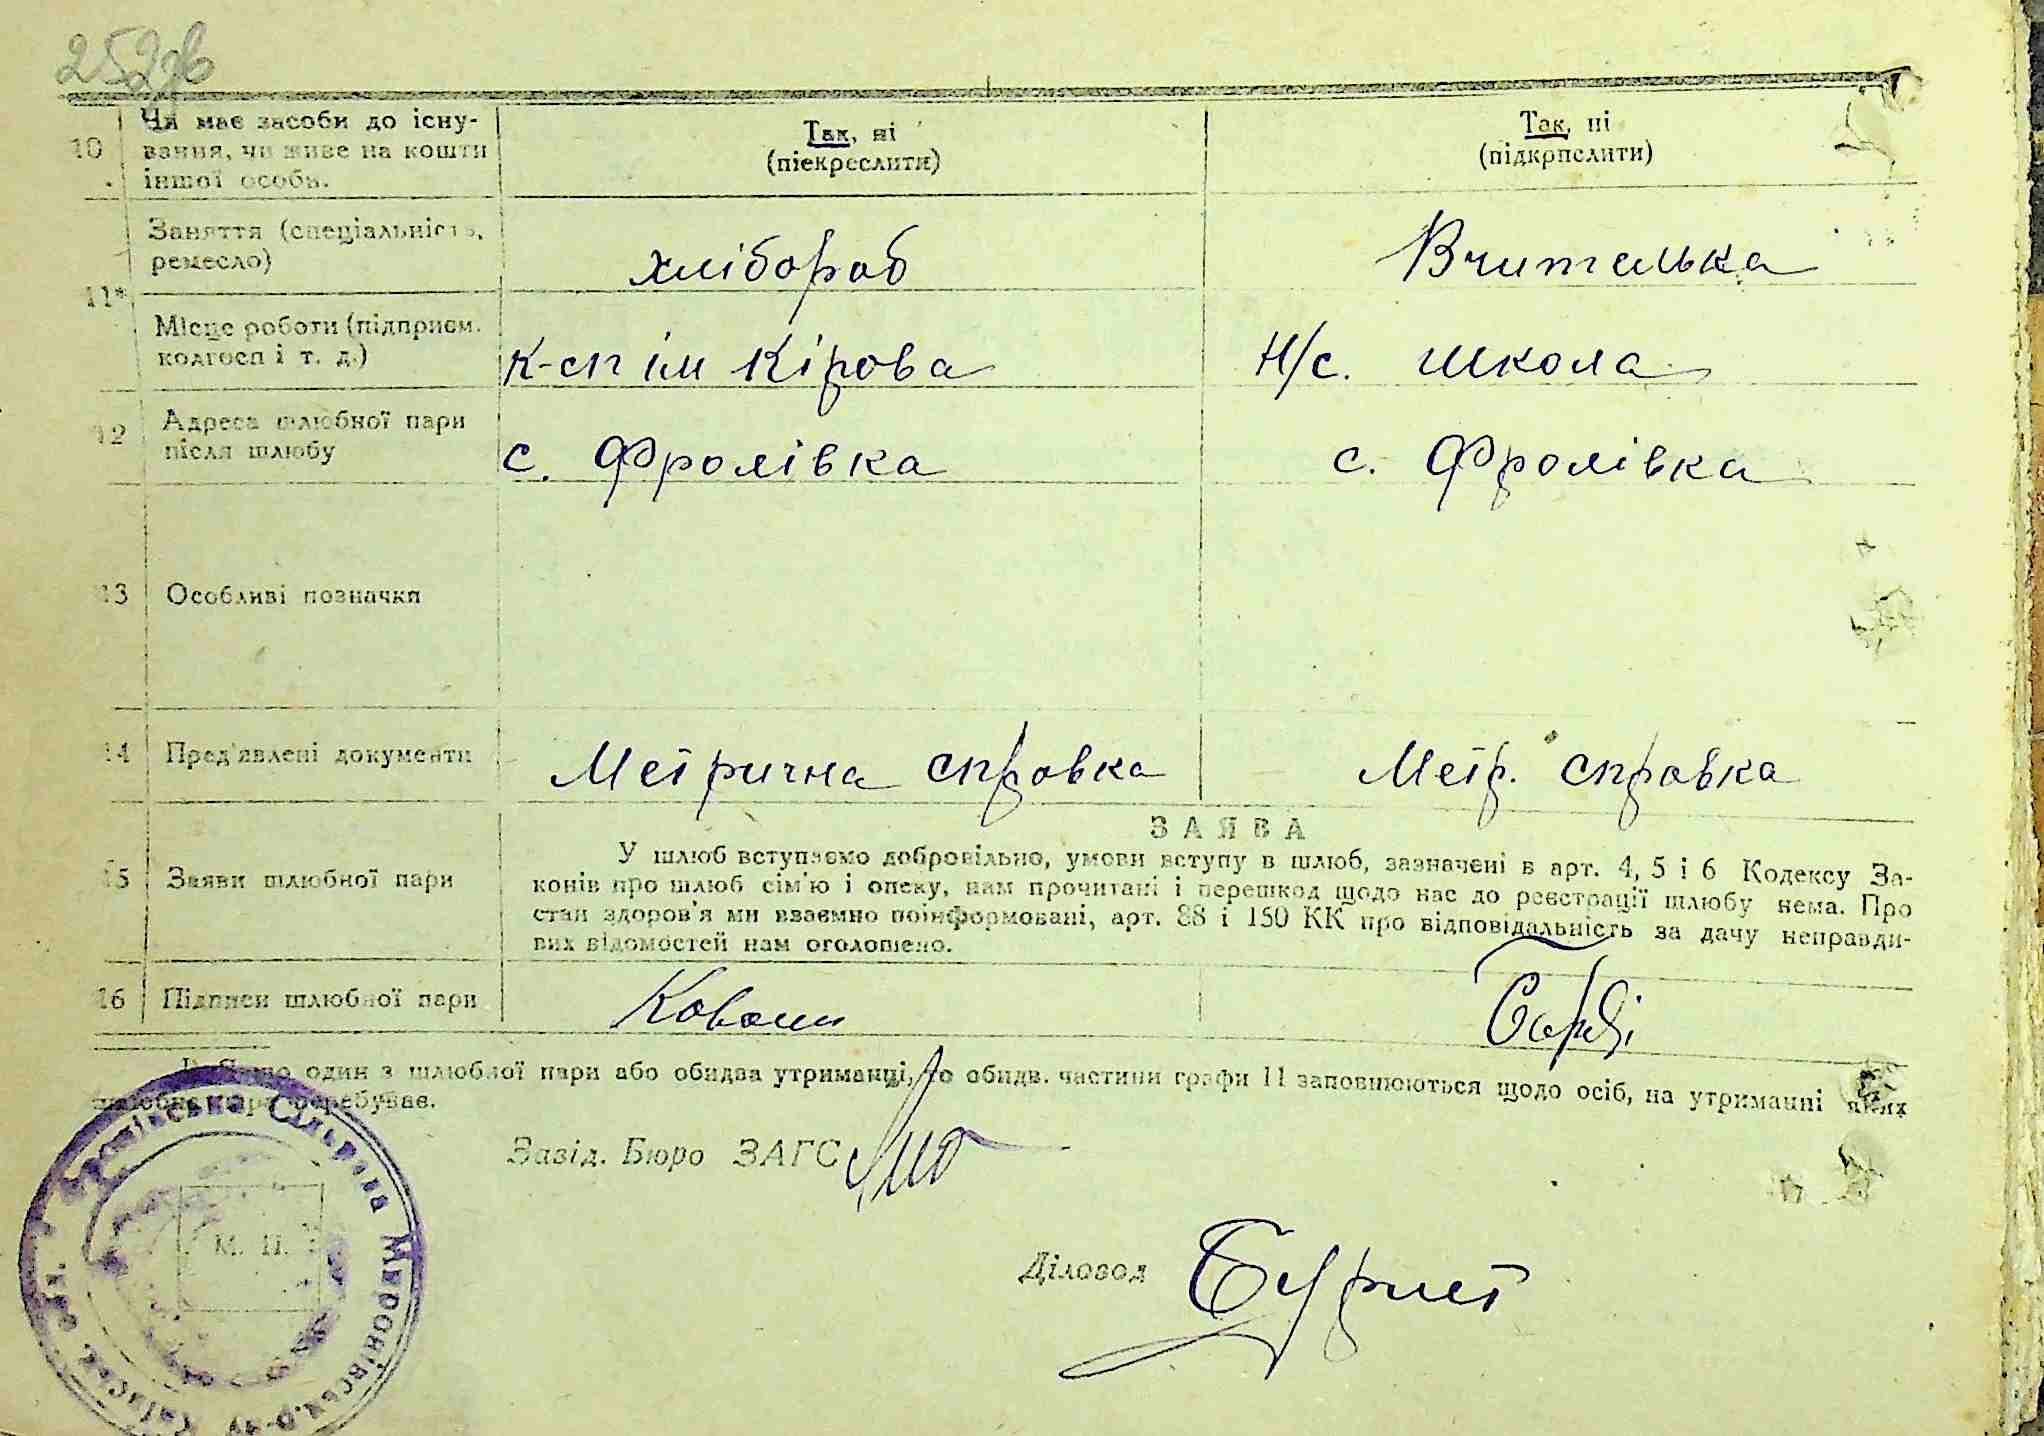 10
Чи має засоби до існу-
вання, чи живе на кошти
іншої особи.
Так, ні
(піекреслити)
Так, ні
(підкрпслити)
11*
Заняття (спеціальність,
ремесло)
хлібороб
Вчителька
Місце роботи (підприєм.
колгосп і т. д.)
к-сп ім Кірова
Н/с. школа
12
Адреса шлюбної пари
після шлюбу
с. Фролівка
с. Фролівка
13
Особливі позначки
14
Пред'явлені документи
Метрична справка
Метр. справка
15
Заяви шлюбної пари
ЗАЯВА
У шлюб вступаємо добровільно, умови вступу в шлюб, зазначені в арт. 4, 5 і 6 Кодексу За-
конів про шлюб сім'ю і опеку, нам прочитані і перешкод щодо нас до реєстрації шлюбу нема. Про
стан здоров'я ми взаємно поінформовані, арт. 88 і 150 КК про відповідальність за дачу неправди-
вих відомостей нам оголошено.
16
Підписи шлюбної пари
один з шлюбної пари або обидва утриманці, то обидв. частини графи 11 заповнюються щодо осіб, на утриманні яких
шлюбна пара перебуває.
Завід. Бюро ЗАГС
Діловод
М. П.
Сільрада Миронівськ. р-ну